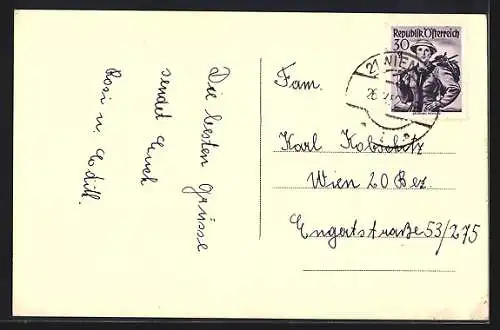 Die besten Grüsse
sendet Euch
Rosi u. Edith.
Republik Österreich
30
21 WIEN
Fam.
Karl Kobschitz
Wien 20 Bez.
Engertstraße 53/275